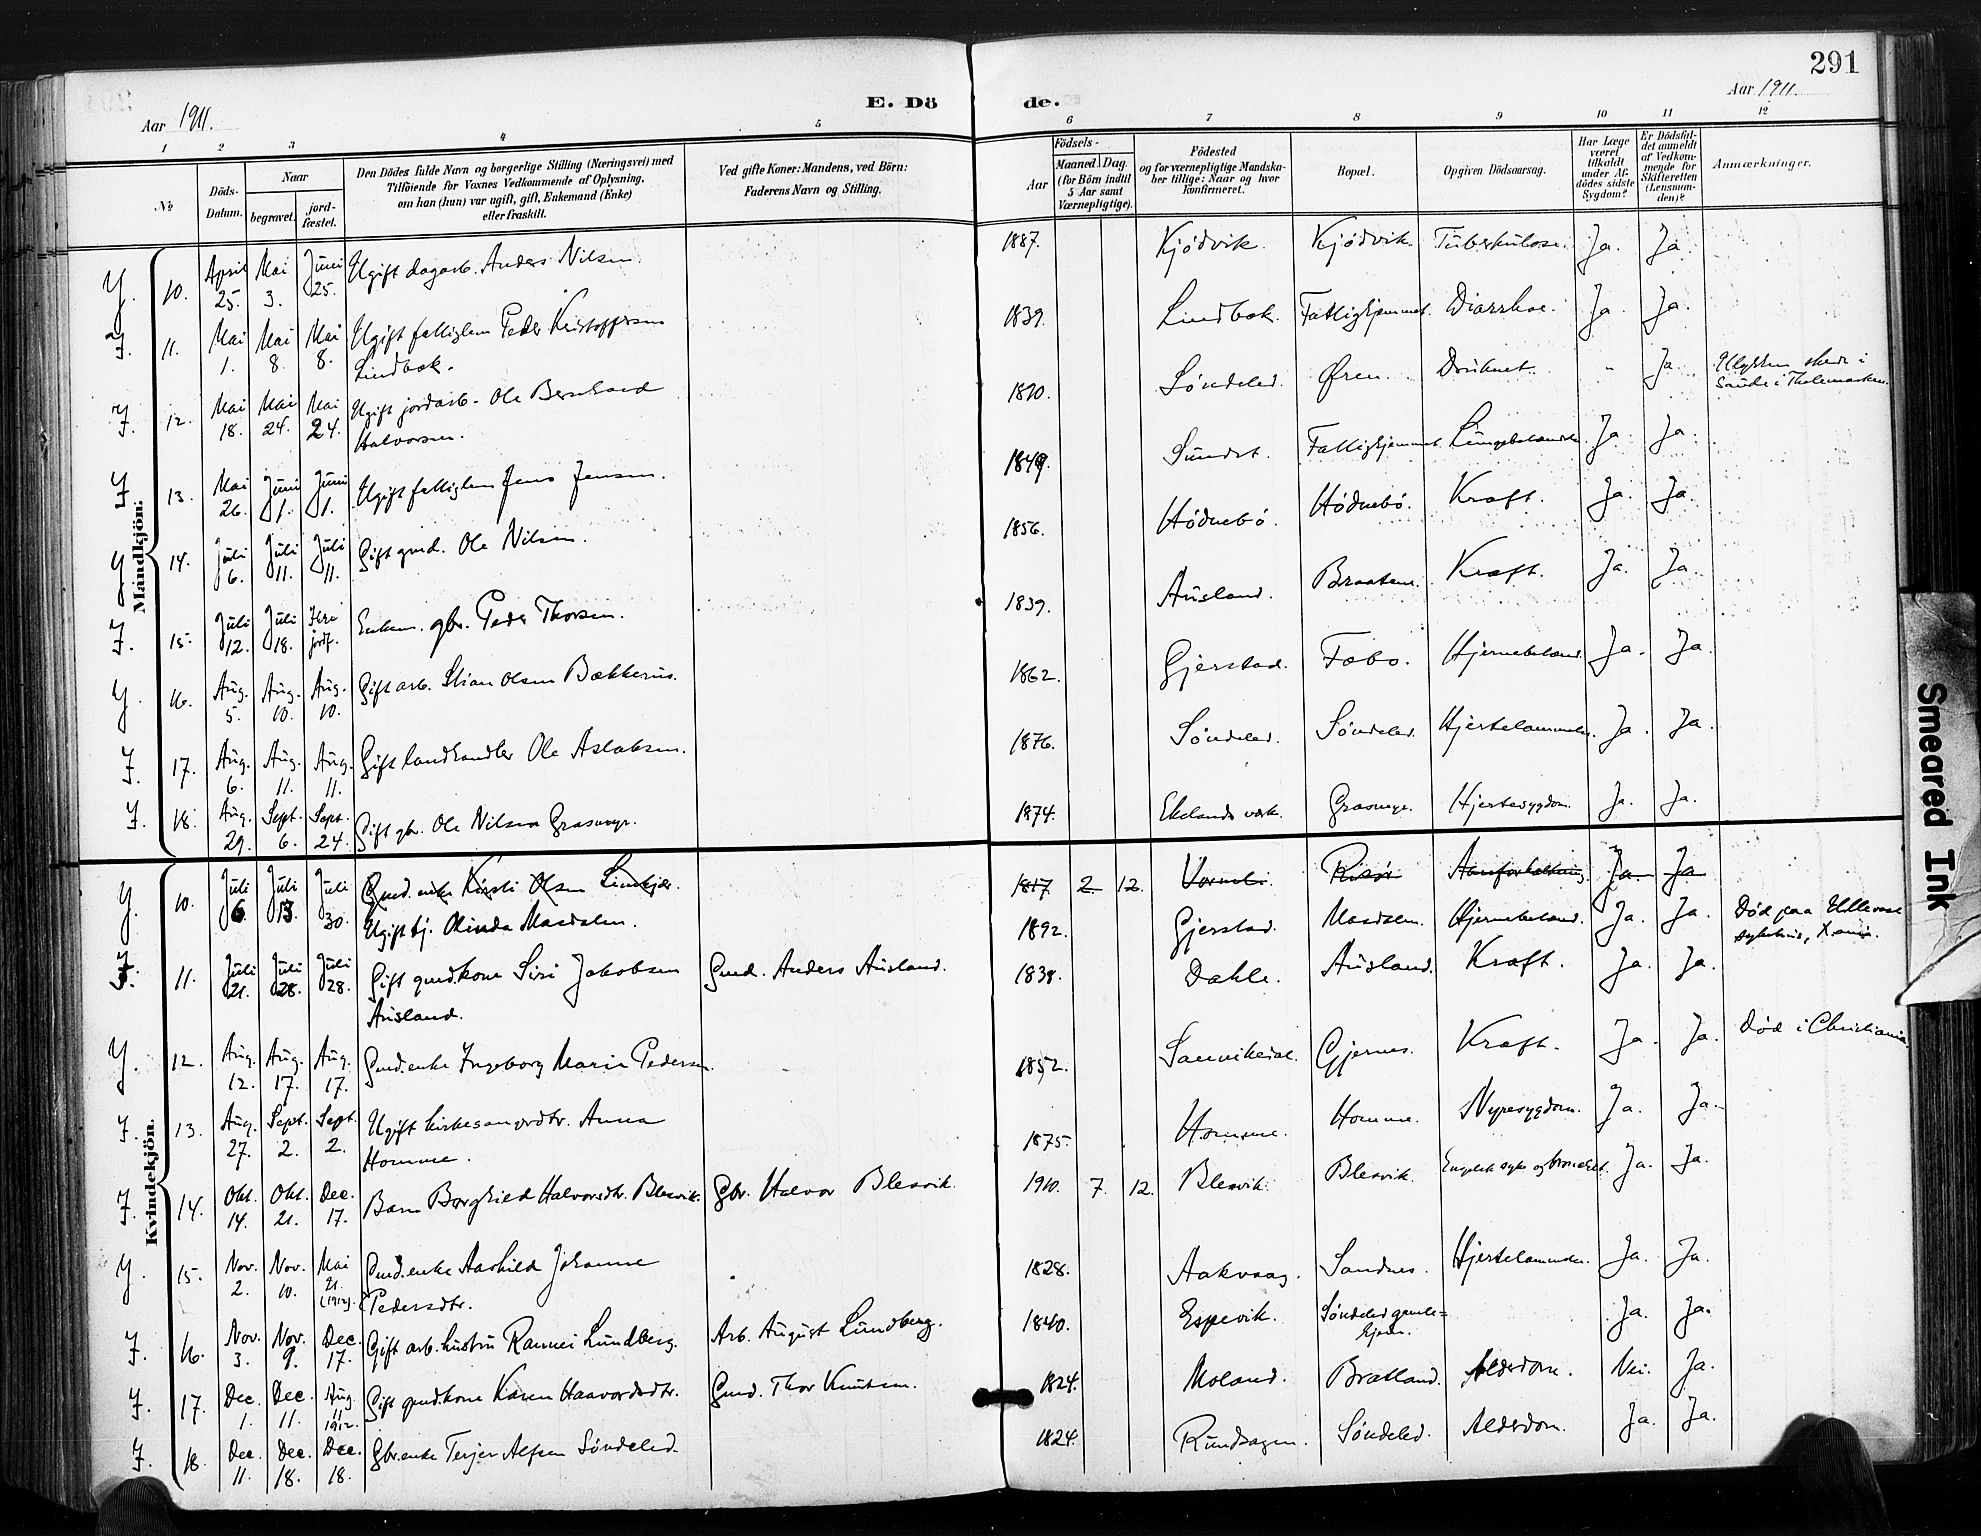 291
Aar 1911.
E. Dö de.
Aar 1911.
1 2 3 4 5 6 7 8 9 10 11 12
№
Döds-Datum.
Naar
begravet.
jord-fæstet.
Den Dödes fulde Navn og borgerlige Stilling (Næringsvei) med
Tilföiende for Voxnes Vedkommende af Oplysning,
om han (hun) var ugift, gift, Enkemand (Enke)
eller fraskilt.
Ved gifte Koner: Mandens, ved Börn:
Faderens Navn og Stilling.
Födsels-
Aar
Maaned. Dag.
(for Börn indtil
5 Aar samt
Værnepligtige).
Födested
og for værnepligtige Mandska-
ber tillige: Naar og hvor
konfirmeret.
Bopæl.
Opgiven Dödsaarsag.
Har Læge
været
tilkaldt
under Af-
dödes sidste
Sygdom?
Er Dödsfal-
det anmeldt
af Vedkom-
mende for
Skifteretten
(Lensman-
den)?
Anmærkninger.
Mandkjön.
Y. 10. April 25. Mai 3. Juni 25. Ugift dagarb. Anders Nilsen. 1887. Kjødvik. Kjødvik. Tuberkulose. Ja. Ja
I. 11. Mai 1. Mai 8. Mai 8. Ugift fattiglem Peder Kristoffersen
Lindbæk. 1839. Lindbæk. Fattighjemmet. Diarrhoe. Ja. Ja.
I. 12. Mai 18. Mai 24. Mai 24. Ugift jordarb. Ole Bernhard
Halvorsen. 1890. Søndeled. Øren. Druknet. " Ja. Ulykken skede i
Saude i Thelemarken.
I. 13. Mai 26. Juni 1. Juni 1. Ugift fattiglem Jens Jensen. 1849. Sundet. Fattighjemmet. Ja. Ja.
Y 14. Juli 6. Juli 11. Juli 11. Gift gmd. Ole Nilsen. 1856. Hødnebø. Hødnebø. Kræft. Ja. Ja.
I. 15. Juli 12. Juli 18. Enkem. gbr. Peder Thorsen. 1839. Ausland. Braaten. Kræft. Ja. Ja.
Y. 16. Aug. 5. Aug. 10. Aug. 10. Gift arb. Stian Olsen 1862. Gjerstad. Fæbo. Ja. Ja.
I. 17. Aug. 6. Aug. 11. Aug. 11. Gift landhandler Ole Aslaksen. 1876. Søndeled. Søndeled. Hjertelammelse. Ja. Ja.
I. 18. Aug. 29. Sept. 6. Sept. 24. Gift gbr. Ole Nilsen Græsmyr. 1874. Ekelands værk. Græsmyr. Hjertesygdom. Ja. Ja.
Kvindekjön.
Y. 10. Juli 6. Juli 13. Juli 30. Gmd.enke Kirsti Olsen 1817 2. 12. Risør Aareforkalkning. Ja. Ja
Ugift tj. Olinda Masdalen. 1892. Gjerstad. Masdalen. Ja. Ja. Død paa Ullevaal
sykehus, Xania.
I. 11. Juli 21. Juli 28. Juli 28. Gift gmd.kone Siri Jakobsen
Ausland. Gmd. Anders Ausland. 1838. Dahle. Ausland. Kræft. Ja. Ja.
Y. 12. Aug. 12. Aug. 17. Aug. 17. Gmd.enke Ingeborg Marie Pedersen. 1852. Gjernes. Kræft. Ja. Ja. Død i Christiania.
I. 13. Aug. 27. Sept. 2. Sept. 2. Ugift kirkesangerdtr. Anna
Homme. 1875. Homme. Homme. Nyresygdom. Ja. Ja.
I. 14. Okt. 14. Okt. 21. Dec. 17. Barn Borghild Halvorsdtr. Blesvik. Gbr. Halvor Blesvik. 1910. 7. 12. Blesvik. Blesvik. Engelsk syke og bronchit. Ja. Ja.
Y. 15. Nov. 2. Nov. 10. Mai 21. (1912). Gmd.enke Aashild Johanne
Pedersdtr. 1828. Aakvaag. Sandnes. Hjertelammelse. Ja. Ja.
I. 16. Nov. 3. Nov. 9. Dec. 17. Gift arb. hustru Rannei Lundberg. Arb. August Lundberg. 1840. Espevik. Søndeled gamle-
hjem. Ja. Ja.
I. 17. Dec. 1. Dec. 11. Aug. 11 1912. Gift gmd.kone Karen Haavordsdtr. Gmd. Thor Knutsen. 1824. Moland. Bratland. Alderdom. Nei. Ja.
I. 18. Dec. 11. Dec. 18. Dec. 18. Gbr.enke Terjer Alfsen Søndeled. 1824. Søndeled. Alderdom. Ja. Ja.
Smeared Ink